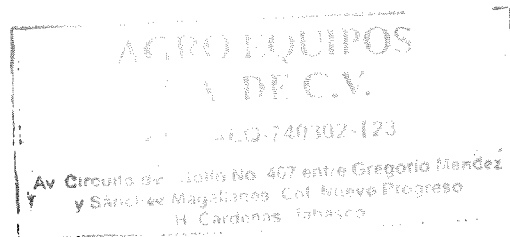 AGRO EQUIPOS
DE C.V.
740302-123
Av Circuito del No. 467 entre Gregorio Mendez
y Sánchez Magallanes Col. Nuevo Progreso
H. Cardenas Tabasco